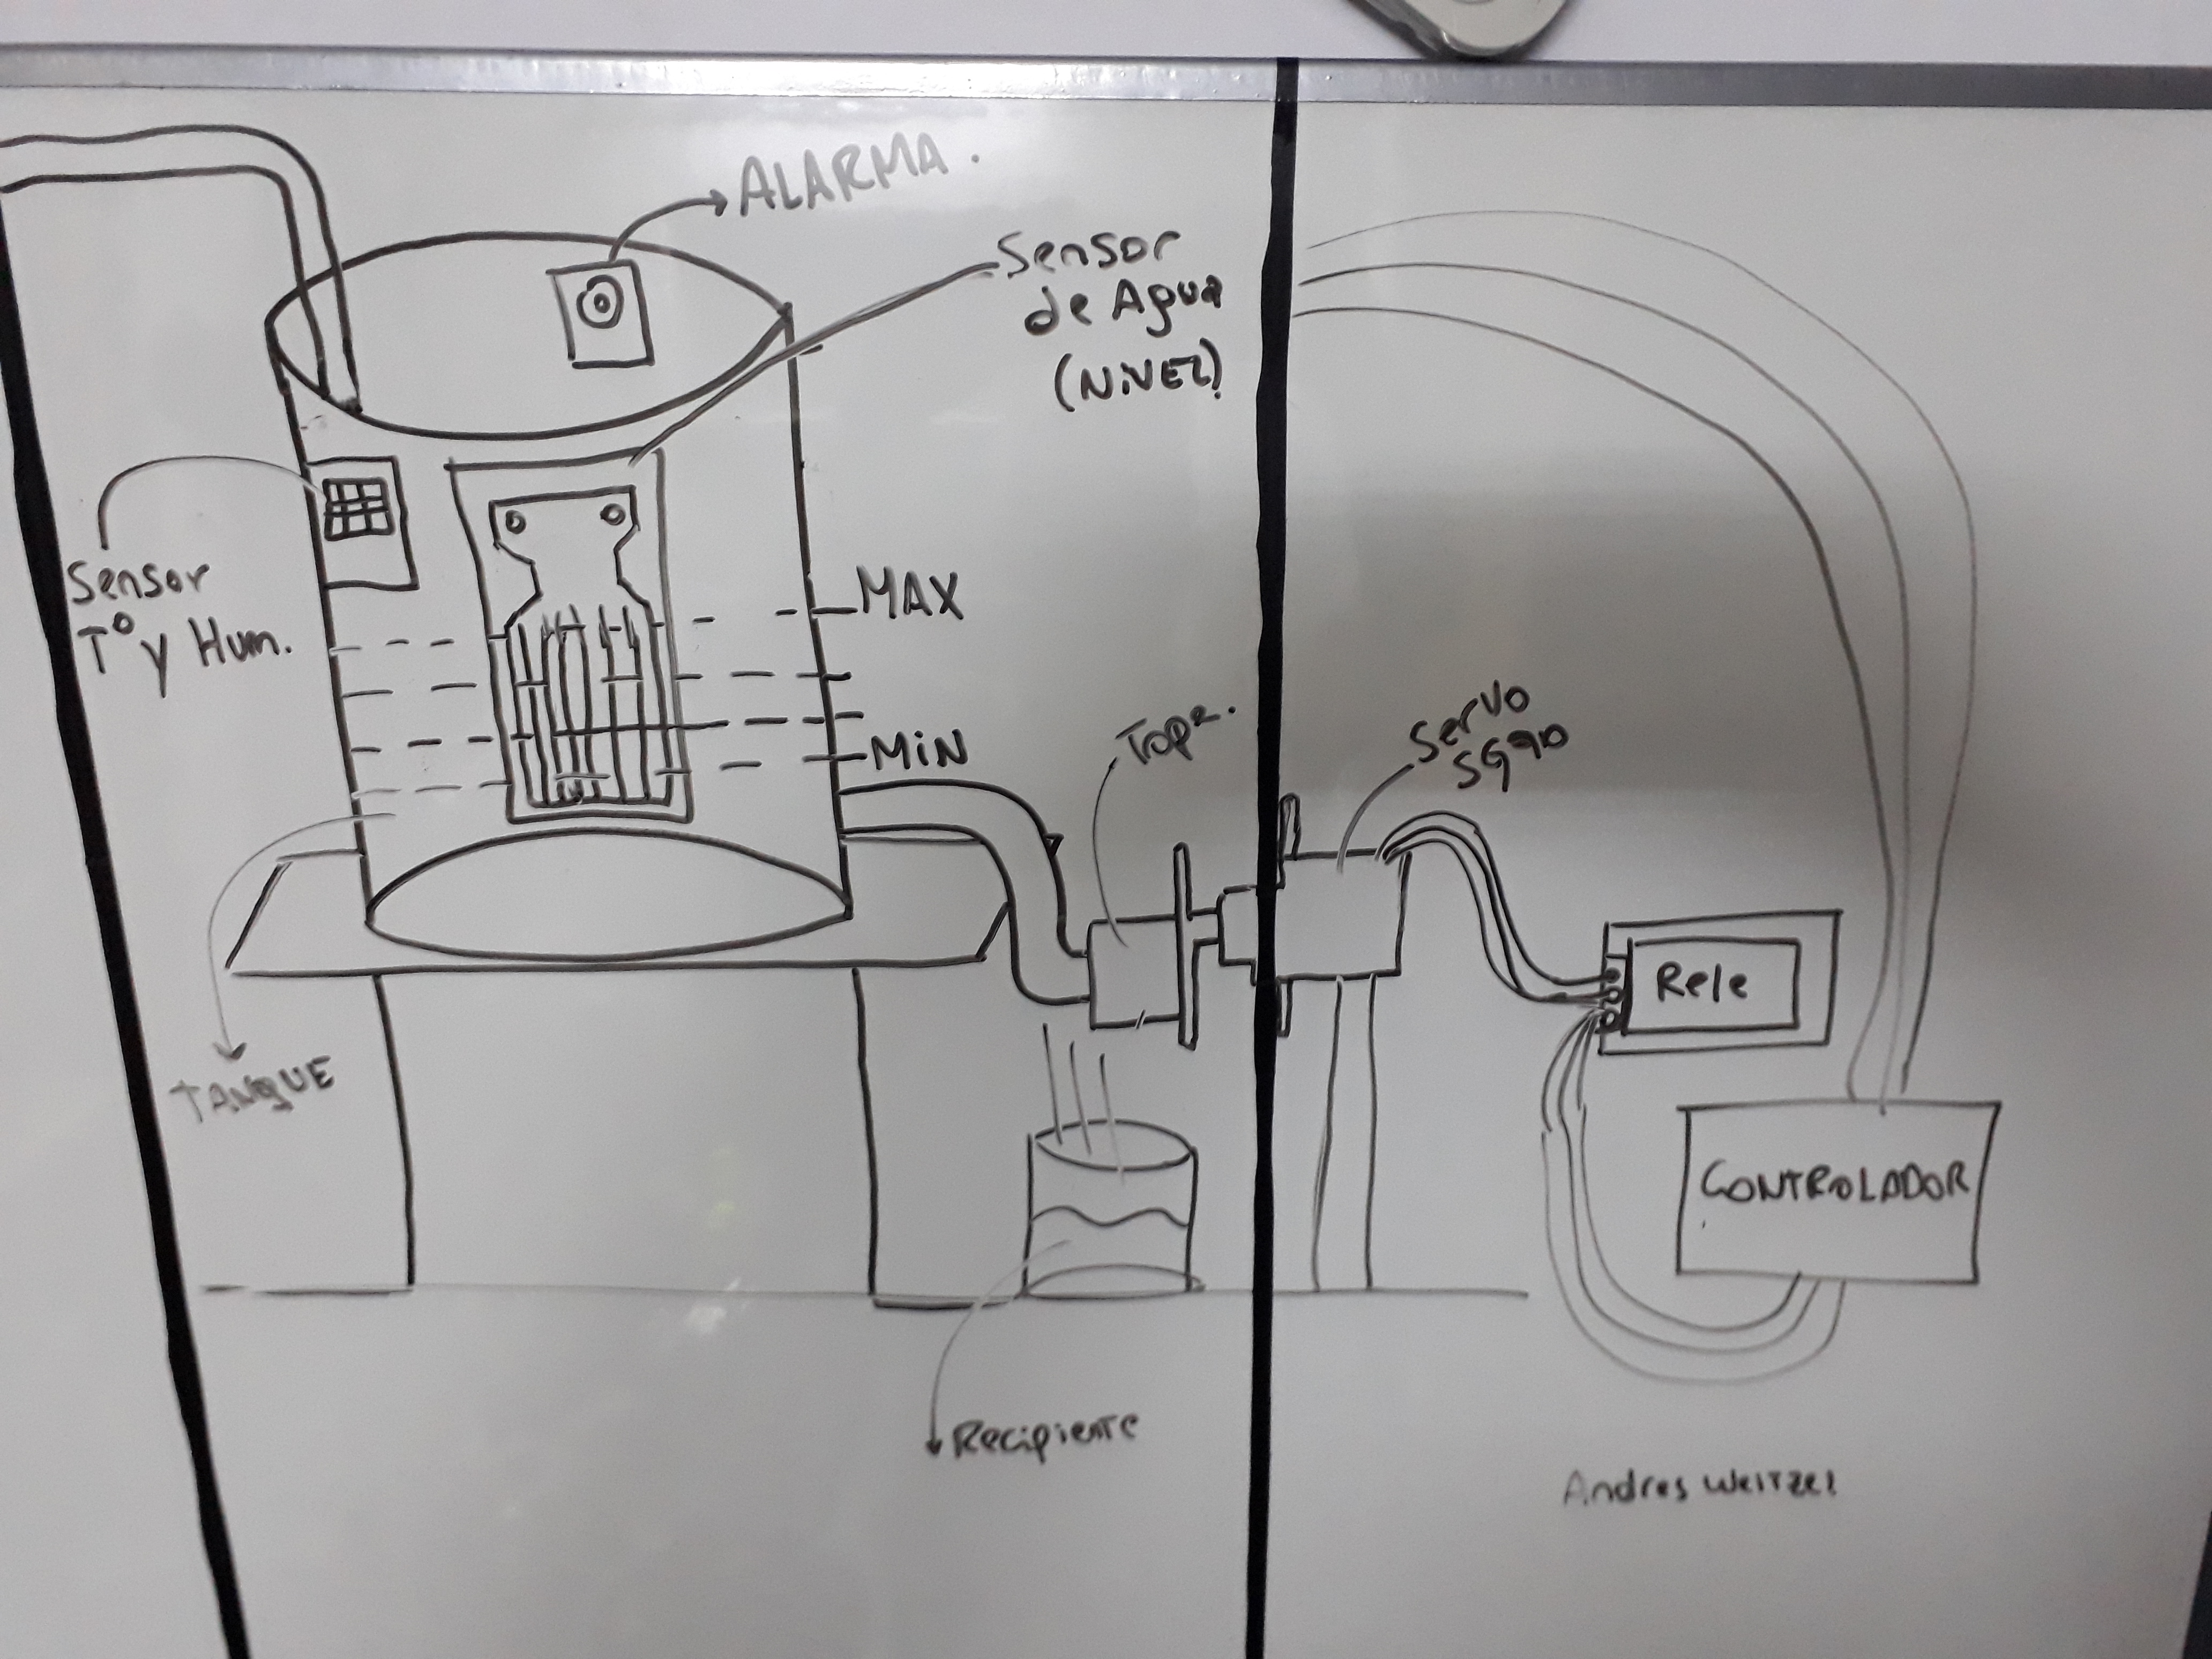 ALARMA.
Sensor
de Agua
(NiVEL)
Sensor
T° y Hum.
MAX
MiN
Tope.
Servo
SG90
Rele
TANQUE
CONTROLADOR
Recipiente
Andres Weitzel